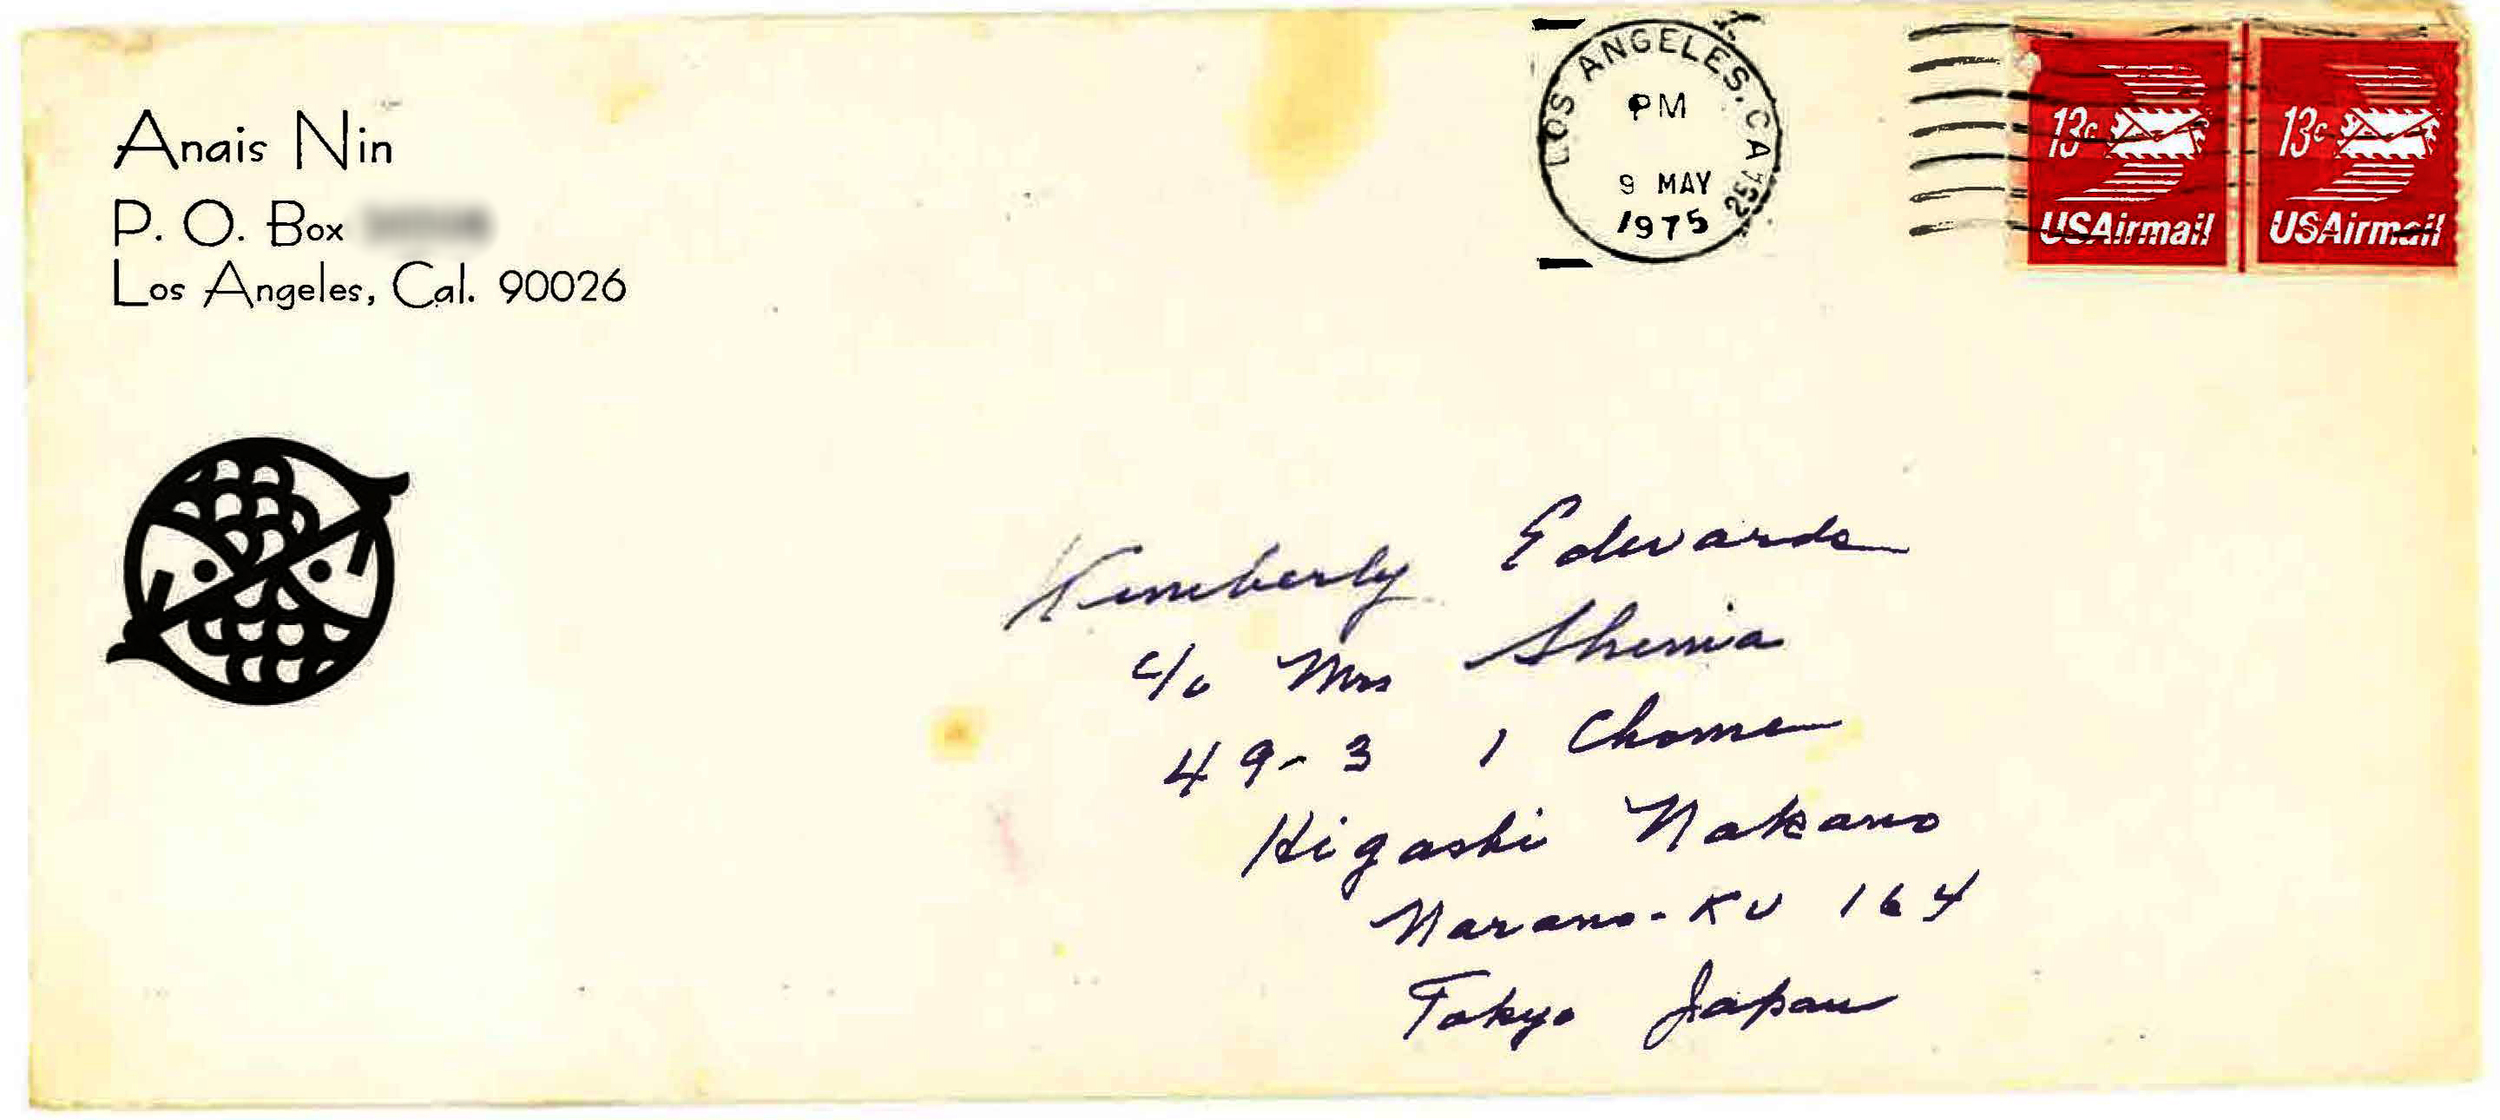 Anais Nin
P. O. Box
Los Angeles, Cal. 90026
LOS ANGELES, CA
PM
9 MAY
1975
13c
USAirmail
13c
USAirmail
Kimberly Edwards
c/o Mrs
49-3 1 Chome
Higashi Nakano
Narano-KU 164
Tokyo Japan